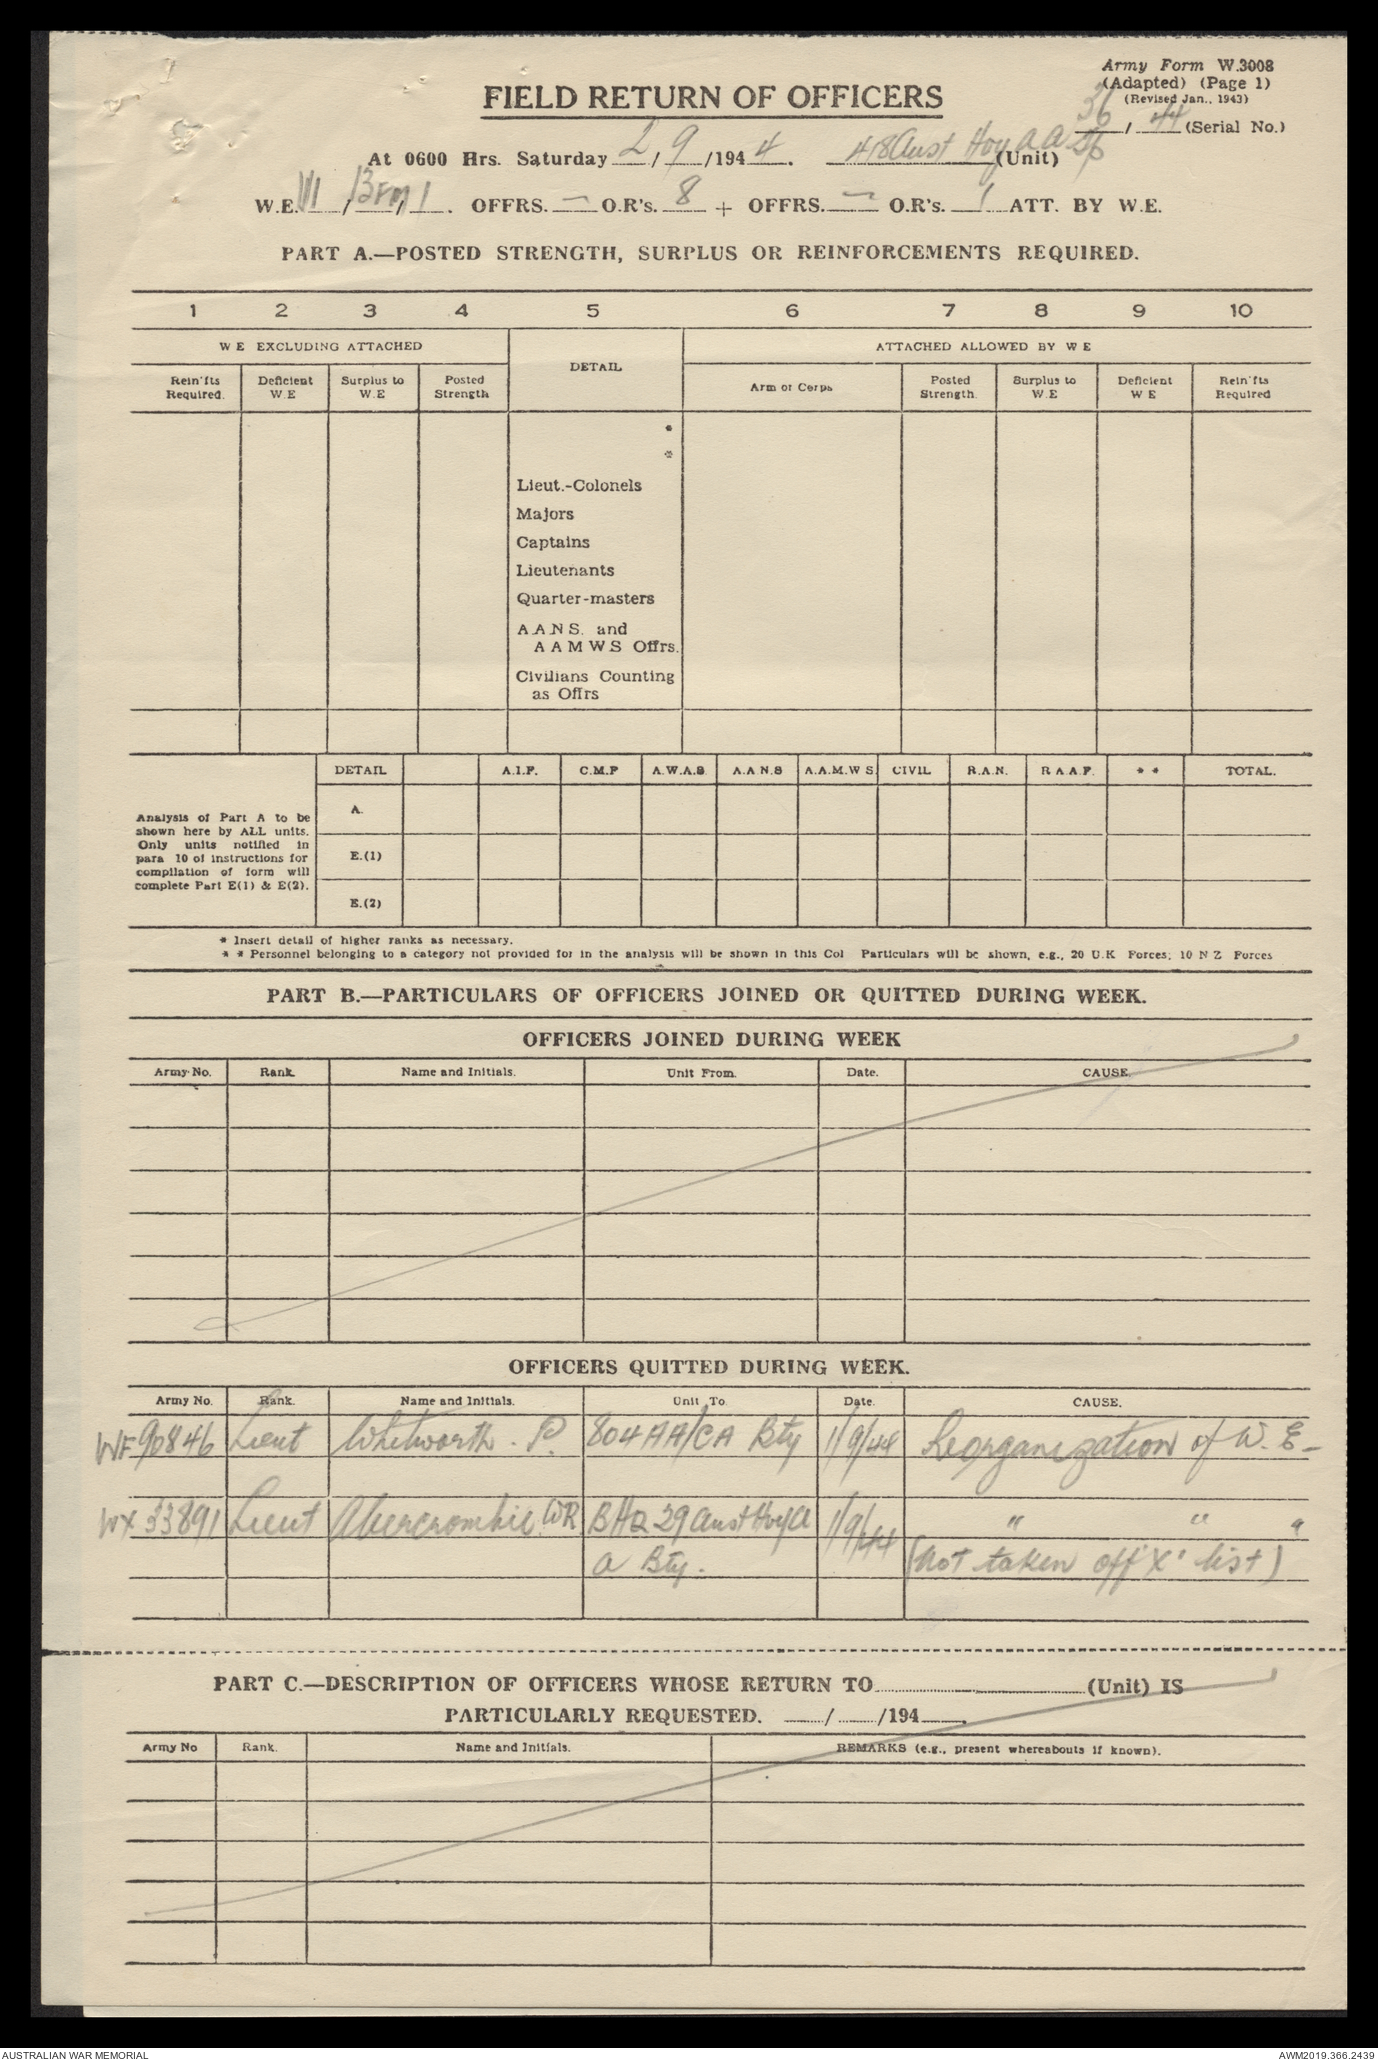 Army Form W.3008
(Adapted) (Page 1)
(Revised Jan., 1943)
36 / 44 (Serial No.)
FIELD RETURN OF OFFICERS
At 0600 Hrs. Saturday 2/9/1944. 418 Aust Hvy AA (Unit)
W.E. III / 13 / 1. OFFRS. — O.R's. 8 + OFFRS. — O.R's. 1 ATT. BY W.E.
PART A.—POSTED STRENGTH, SURPLUS OR REINFORCEMENTS REQUIRED.
1 2 3 4 5 6 7 8 9 10
W E EXCLUDING ATTACHED DETAIL ATTACHED ALLOWED BY W E
Rein'fts Required. Deficient W.E Surplus to W.E Posted Strength Arm or Corps Posted Strength. Surplus to W.E Deficient W E Rein'fts Required
*
*
Lieut.-Colonels
Majors
Captains
Lieutenants
Quarter-masters
A.A.N.S. and
A A M W S Offrs.
Civilians Counting
as Offrs
DETAIL A.I.F. C.M.F A.W.A.S. A.A N.S A.A.M.W S. CIVIL R.A.N. R A.A.F. * * TOTAL.
Analysis of Part A to be
shown here by ALL units.
Only units notified in
para 10 of instructions for
compilation of form will
complete Part E(1) & E(2).
A.
E.(1)
E.(2)
* Insert detail of higher ranks as necessary.
* * Personnel belonging to a category not provided for in the analysis will be shown in this Col Particulars will be shown, e.g., 20 U.K Forces; 10 N Z Forces
PART B.—PARTICULARS OF OFFICERS JOINED OR QUITTED DURING WEEK.
OFFICERS JOINED DURING WEEK
Army No. Rank. Name and Initials. Unit From. Date. CAUSE.
OFFICERS QUITTED DURING WEEK.
Army No. Rank. Name and Initials. Unit To. Date. CAUSE.
WF90846 Lieut Whitworth. P. 804 AA/CA Bty 1/9/44 Reorganization of W. E-
WX 33891 Lieut Abercrombie WR BHQ 29 Aust Hvy A 1/9/44 " " "
A Bty. (Not taken off 'X' list)
PART C.—DESCRIPTION OF OFFICERS WHOSE RETURN TO (Unit) IS
PARTICULARLY REQUESTED. / /194
Army No Rank. Name and Initials. REMARKS (e.g., present whereabouts if known).
AUSTRALIAN WAR MEMORIAL AWM2019.366.2439